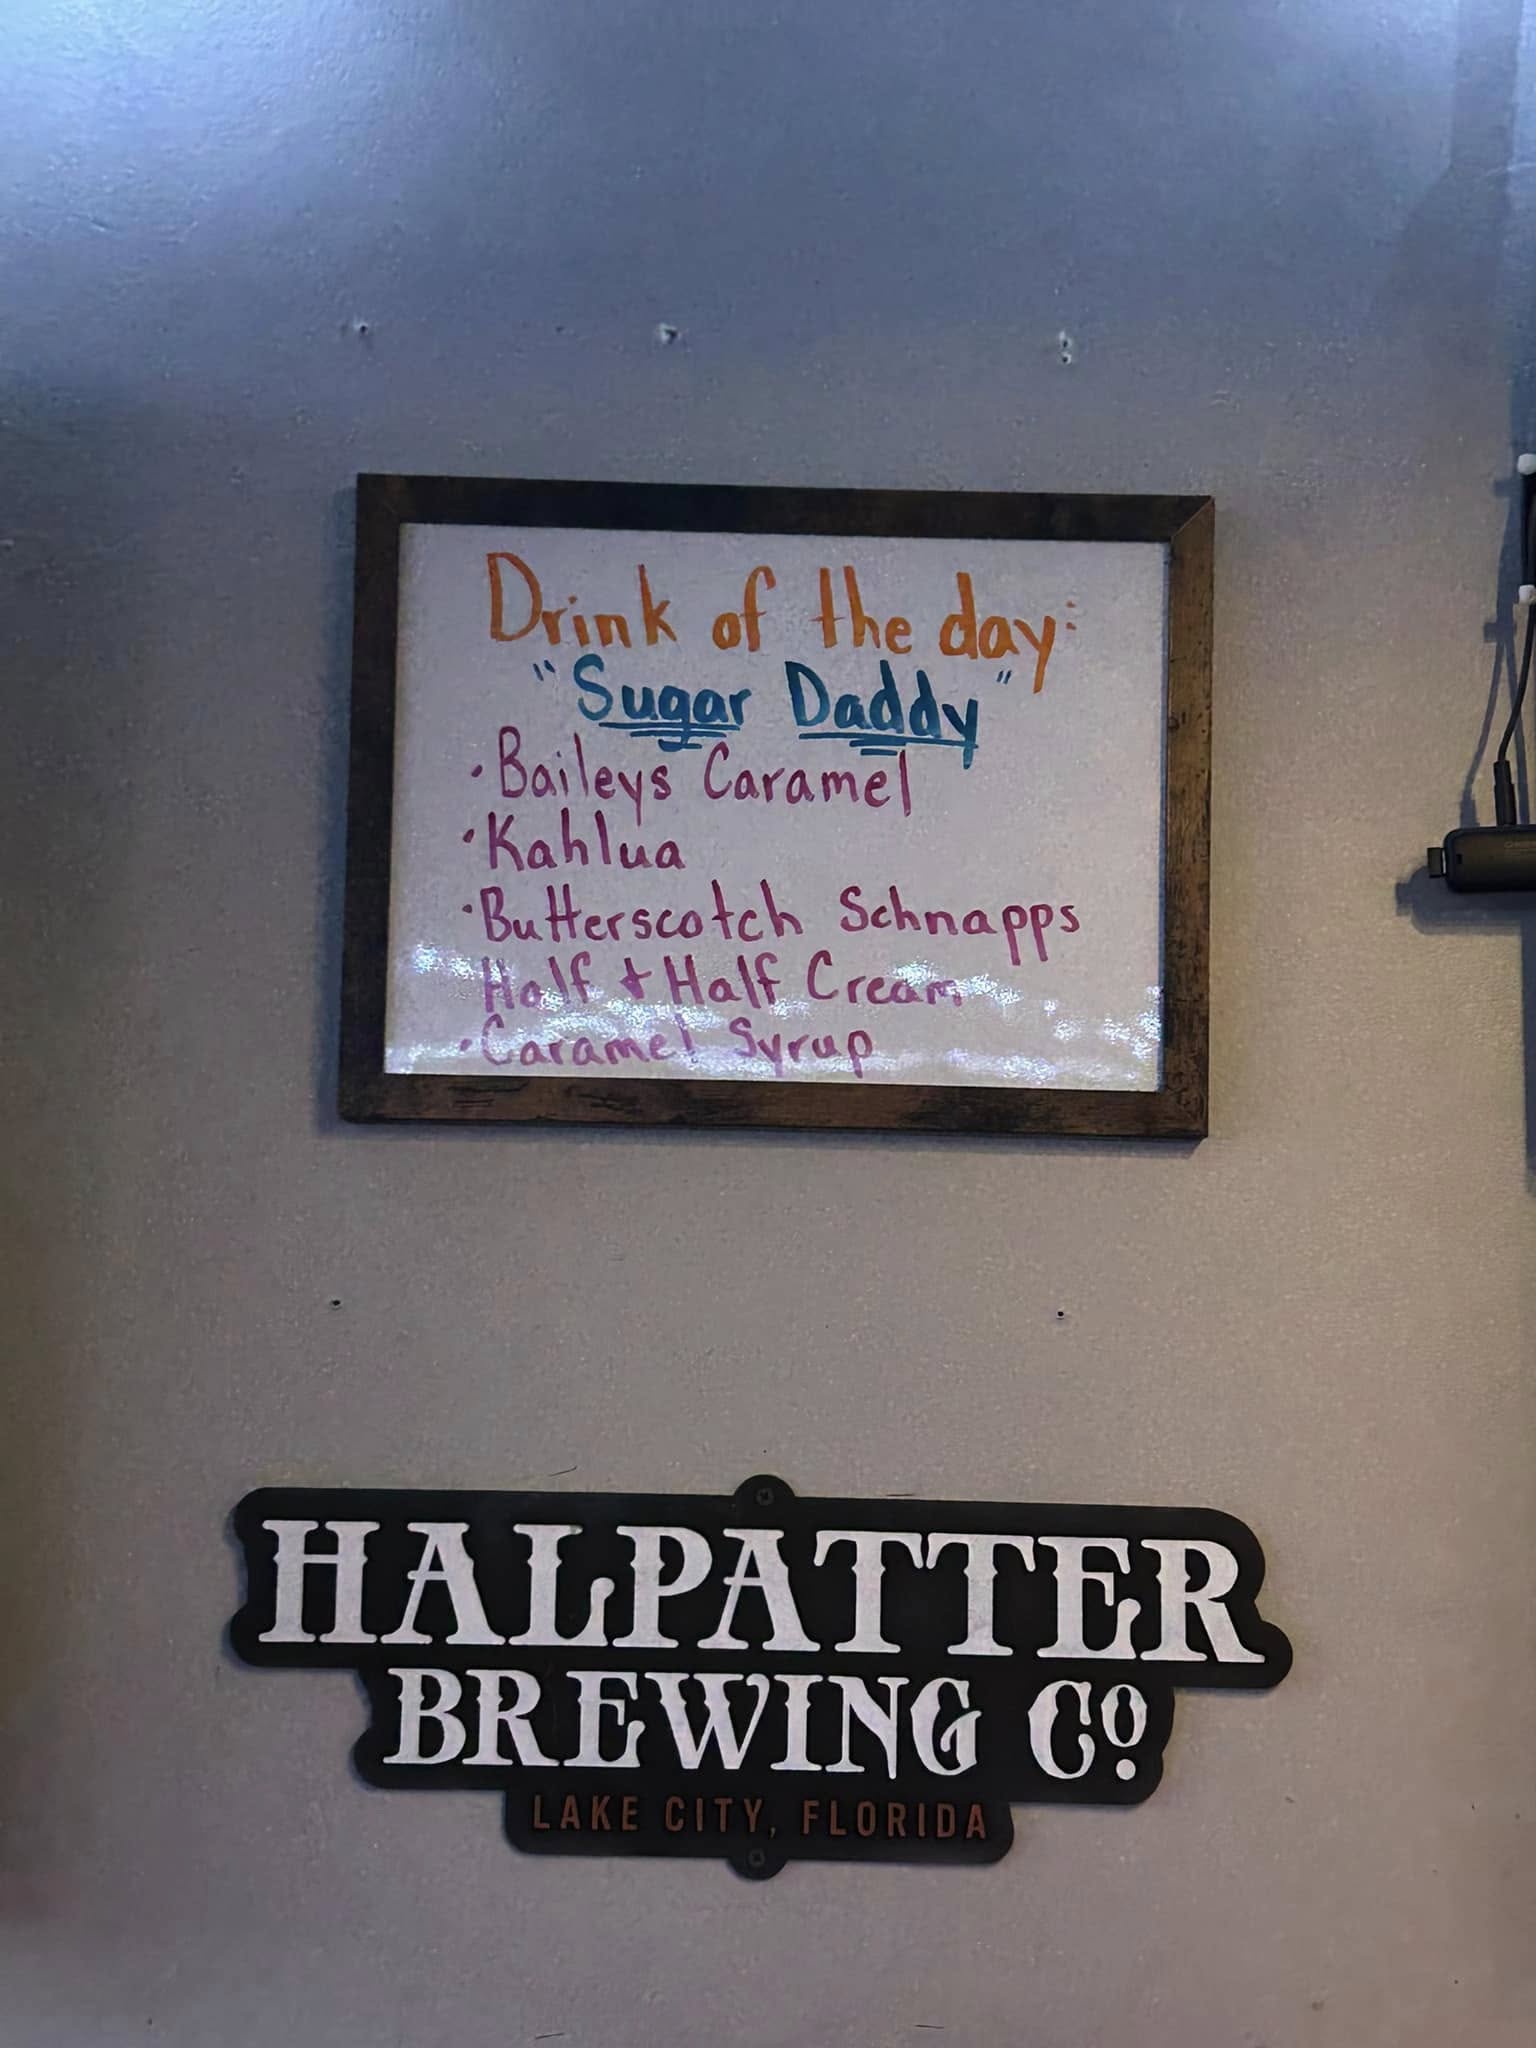 Drink of the day:
"Sugar Daddy"
• Baileys Caramel
• Kahlua
• Butterscotch Schnapps
• Half & Half Cream
• Caramel Syrup
HALPATTER
BREWING CO.
LAKE CITY, FLORIDA